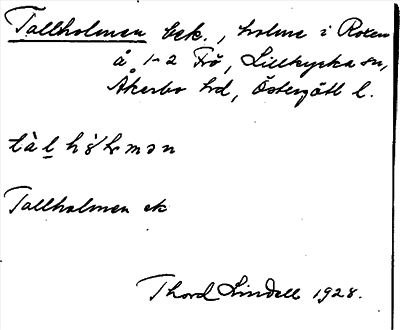 Tallholmen bek., holme i Roxen
å 1-2 Frö, Lillkyrka sn,
Åkerbo hd, Östergötl l.
Tallholmen ek
Thord Lindell 1928.